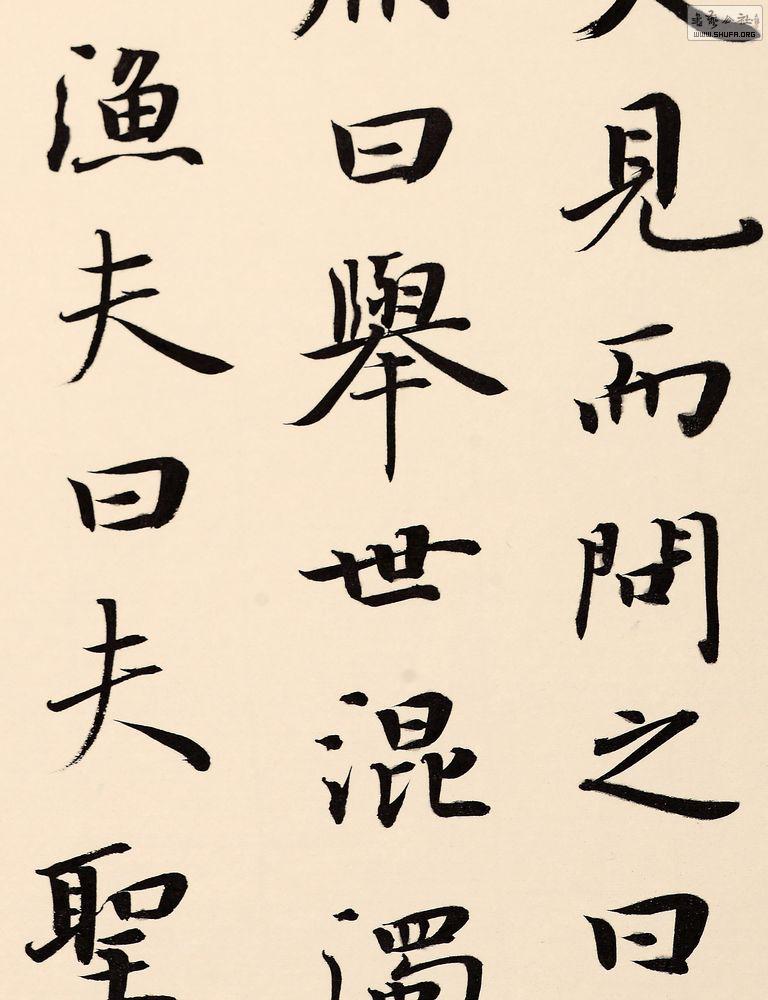 見而問之曰
曰舉世混濁
漁夫曰夫聖
WWW.SHUFA.ORG